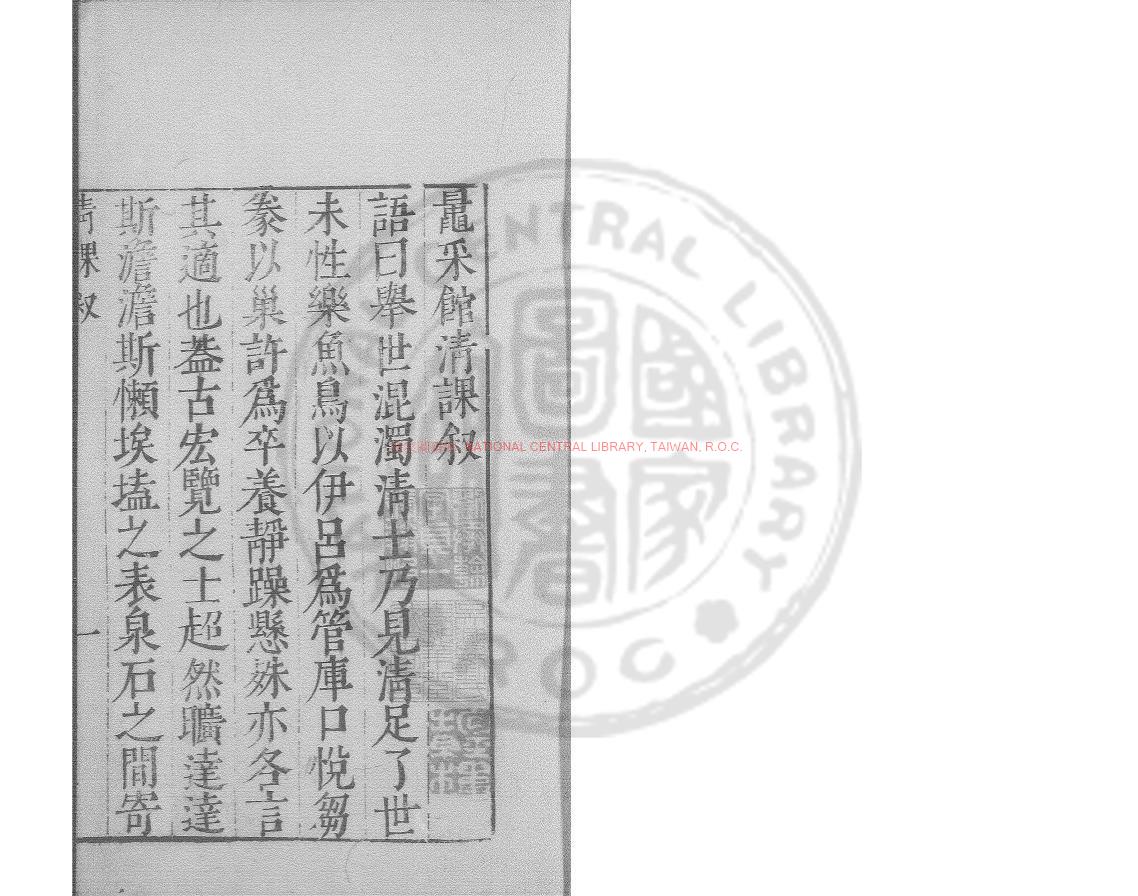 鼂采館清課叙
語曰舉世混濁淸士乃見淸足了世
未性樂魚鳥以伊呂爲管庫口悅芻
豢以巢許爲卒養靜躁懸殊亦各言
其適也葢古宏覽之士超然曠達達
斯澹澹斯懶埃壒之表泉石之間寄
淸課叙
一
NATIONAL CENTRAL LIBRARY, TAIWAN, R.O.C.
CENTRAL LIBRARY
R O C
國家圖書